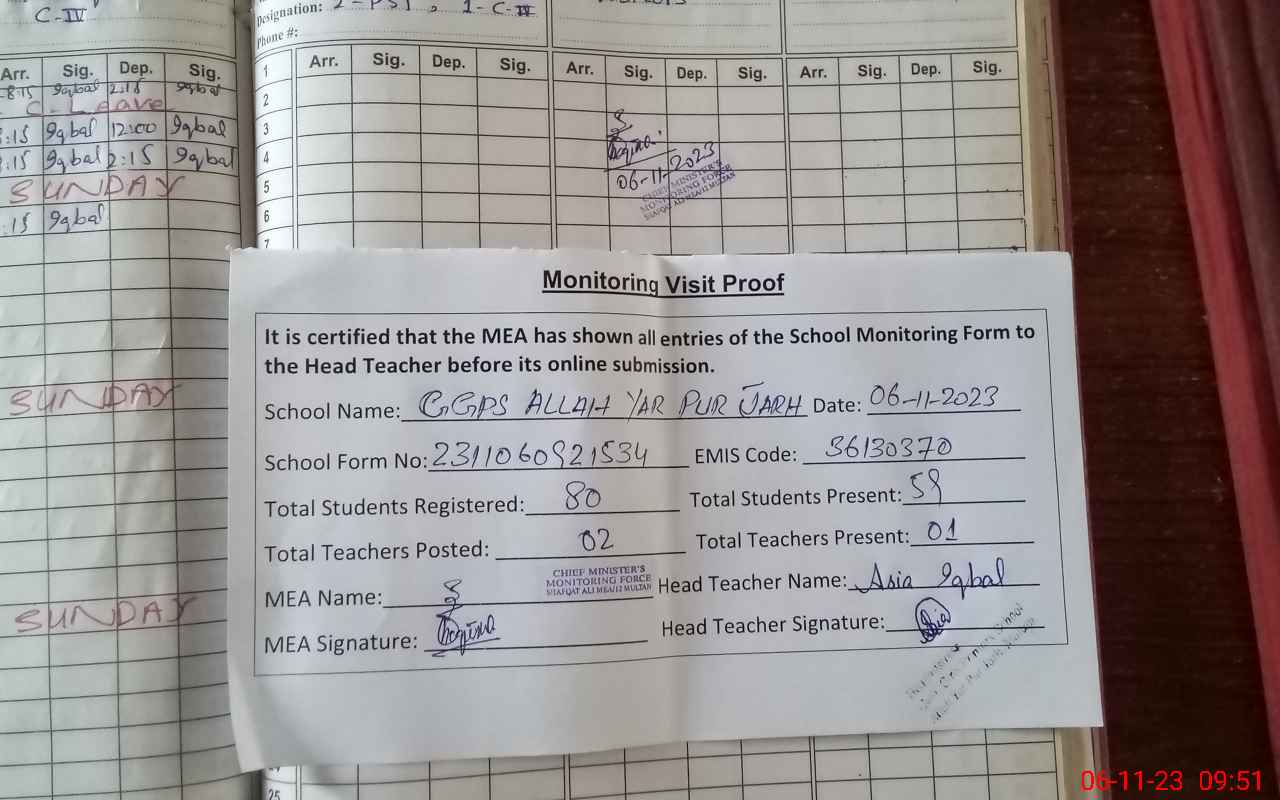 C-IV
Designation: 2-PST, 1-C-IV
Phone #:
Arr. Sig. Dep. Sig.
8:15 Iqbal 2:15 Iqbal
C-Leave
:15 Iqbal 12:00 Iqbal
:15 Iqbal 2:15 Iqbal
SUNDAY
:15 Iqbal
SUNDAY
SUNDAY
Arr. Sig. Dep. Sig. Arr. Sig. Dep. Sig. Arr. Sig. Dep. Sig.
1
2
3
4
5
6
7
06-11-2023
CHIEF MINISTER'S
MONITORING FORCE
SHAFQAT ALI MEA/12 MULTAN
Monitoring Visit Proof
It is certified that the MEA has shown all entries of the School Monitoring Form to
the Head Teacher before its online submission.
School Name: GGPS ALLAH YAR PUR JARH Date: 06-11-2023
School Form No: 2311060921534 EMIS Code: 36130370
Total Students Registered: 80 Total Students Present: 59
Total Teachers Posted: 02 Total Teachers Present: 01
MEA Name: CHIEF MINISTER'S
MONITORING FORCE
SHAFQAT ALI MEA/12 MULTAN
Head Teacher Name: Asia Iqbal
MEA Signature: Head Teacher Signature: Asia
25
06-11-23 09:51